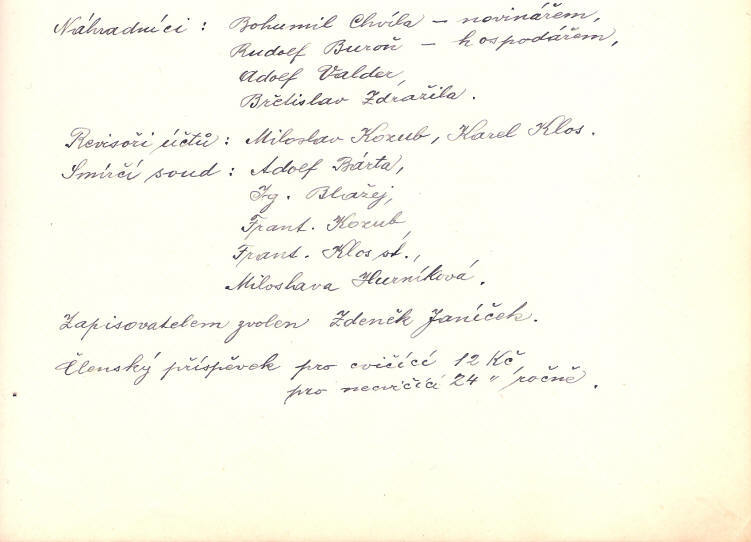 Náhradníci : Bohumil Chvíla – novinářem,
Rudolf Buroň – hospodářem,
Adolf Valder,
Břetislav Zdražila.
Revisoři účtů : Miloslav Kozub, Karel Klos.
Smírčí soud : Adolf Bárta,
Ig. Blažej,
Frant. Kozub,
Frant. Klos st.,
Miloslava Hurníková.
Zapisovatelem zvolen Zdeněk Janíček.
Členský příspěvek pro cvičící 12 Kč,
pro necvičící 24 " ročně.